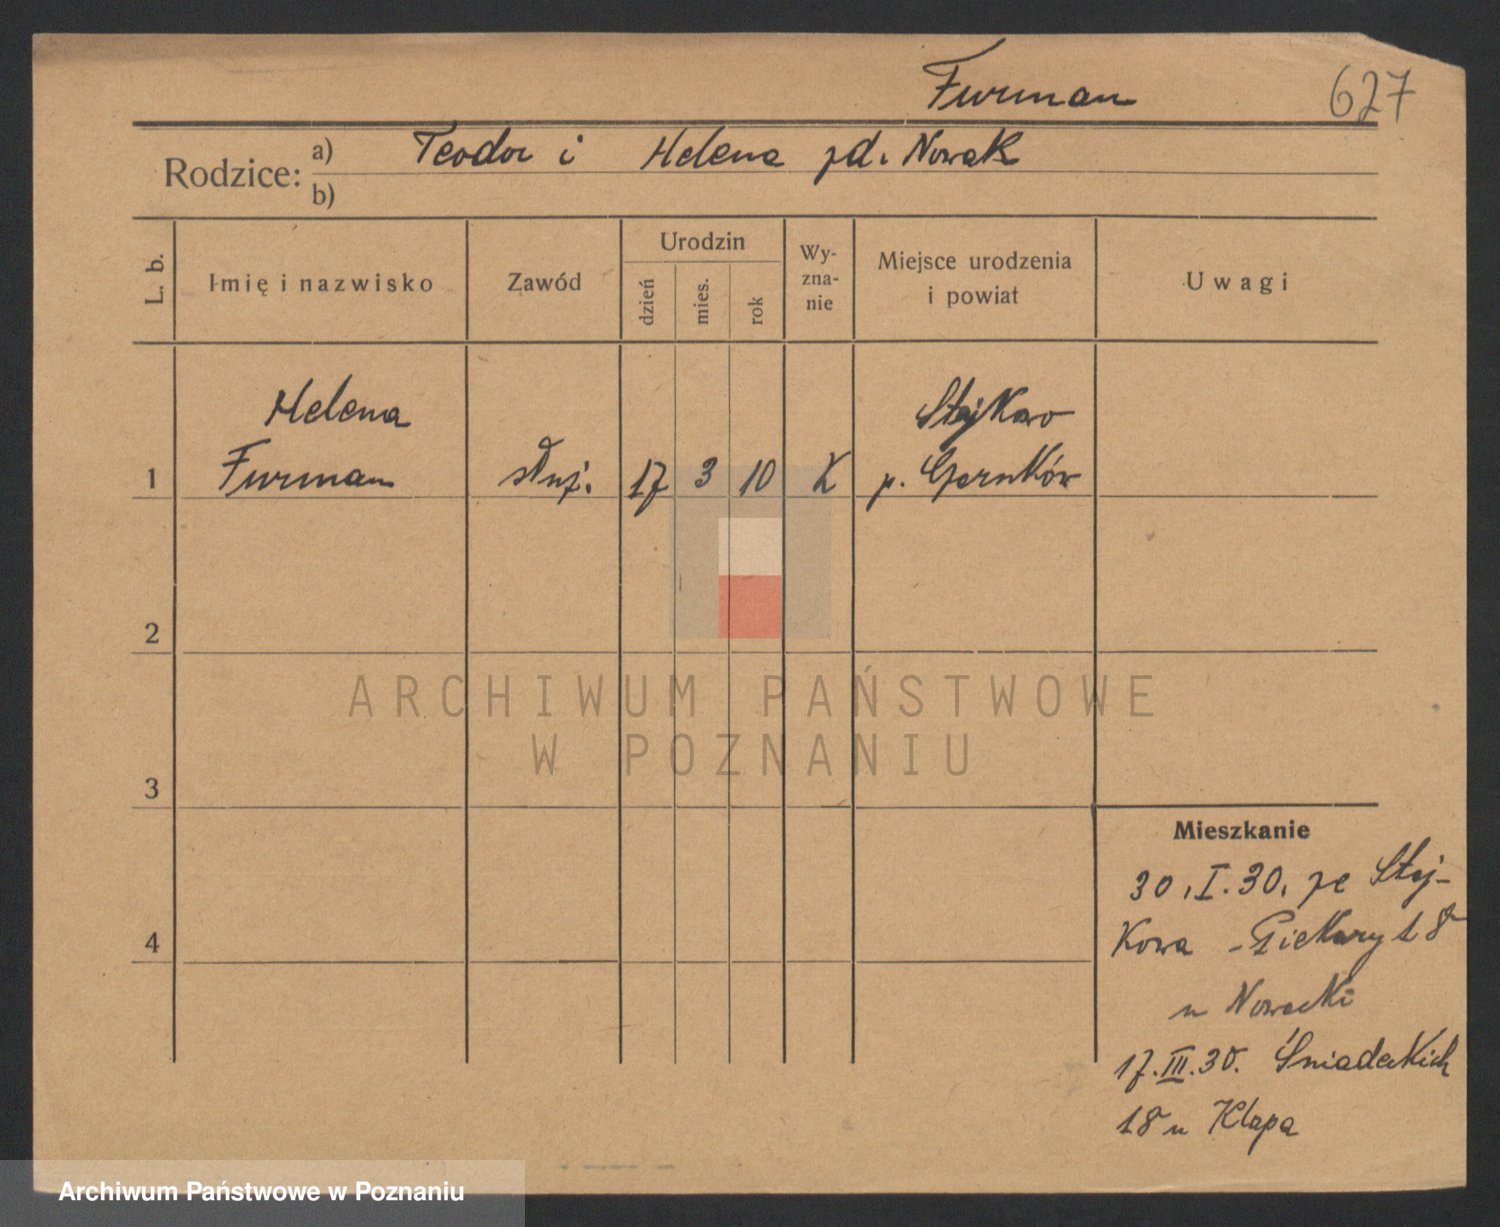 Furman
627
Rodzice:
a) Teodor i Helena zd. Nowak
b)
L. b.
Imię i nazwisko
Zawód
Urodzin
dzień
mies.
rok
Wy-
zna-
nie
Miejsce urodzenia
i powiat
Uwagi
1
Helena
Furman
służ.
17
3
10
K
Stajkowo
p. Czarnków
2
3
4
ARCHIWUM PAŃSTWOWE
W POZNANIU
Mieszkanie
30.I.30. ze Staj-
kowa - Piekary 18
u Nowacki
17.III.30. Śniadeckich
18 u Klapa
Archiwum Państwowe w Poznaniu